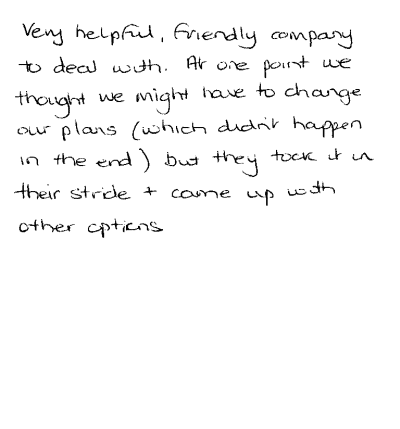 Very helpful, friendly company
to deal with. At one point we
thought we might have to change
our plans (which didn't happen
in the end) but they took it in
their stride + came up with
other options